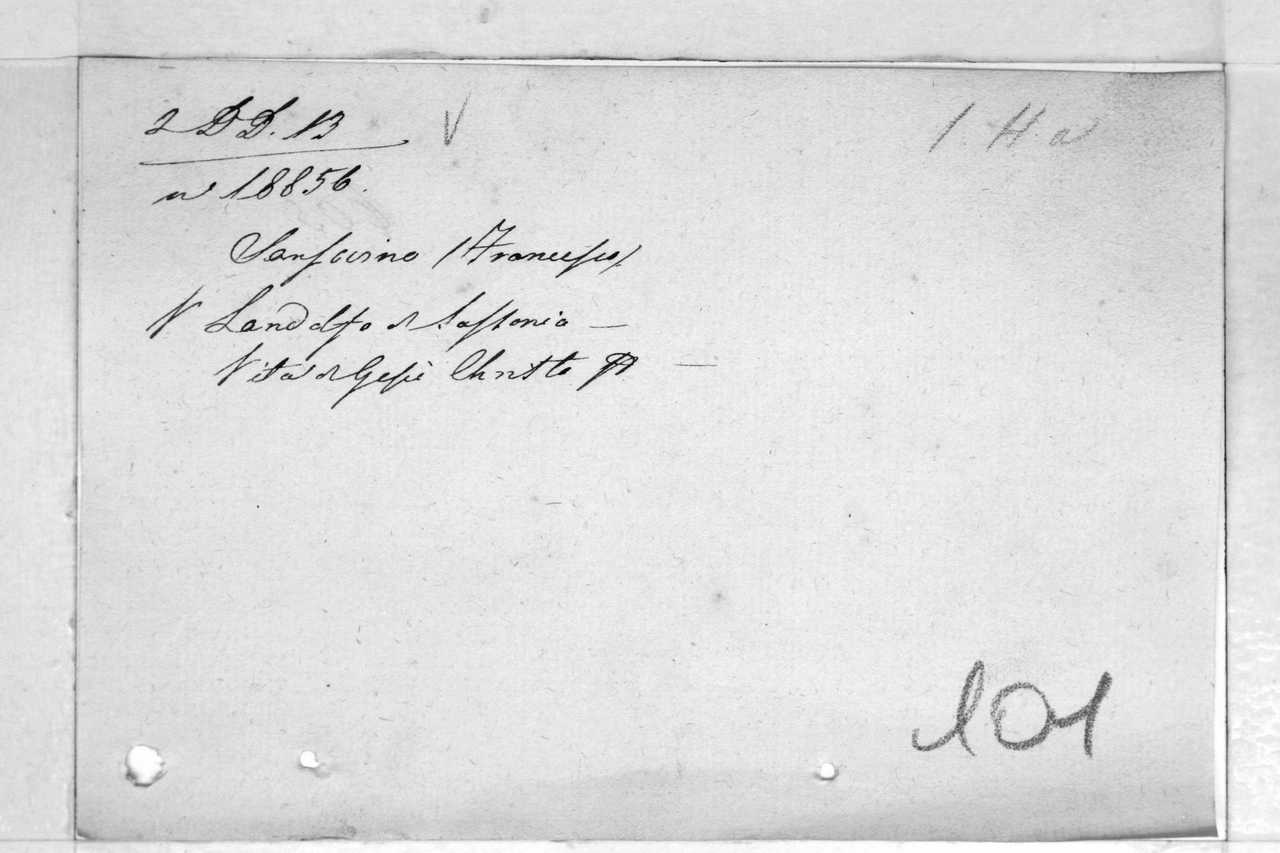 2 DD. 13 V 1 H a
nº 18856.
Sansovino /Francesco/
V Landolfo di Sassonia —
Vita di Gesù Christo —
101